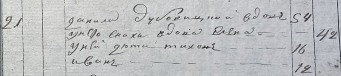 21 данила Дубовицкий вдовъ 54
у него сноха вдова Елена — 42
у ней дети тихонъ 16
иванъ 12